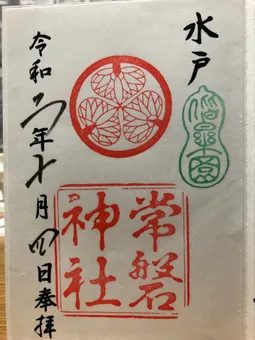 水戸
偕楽園
常磐
神社
令和二年十月四日奉拝